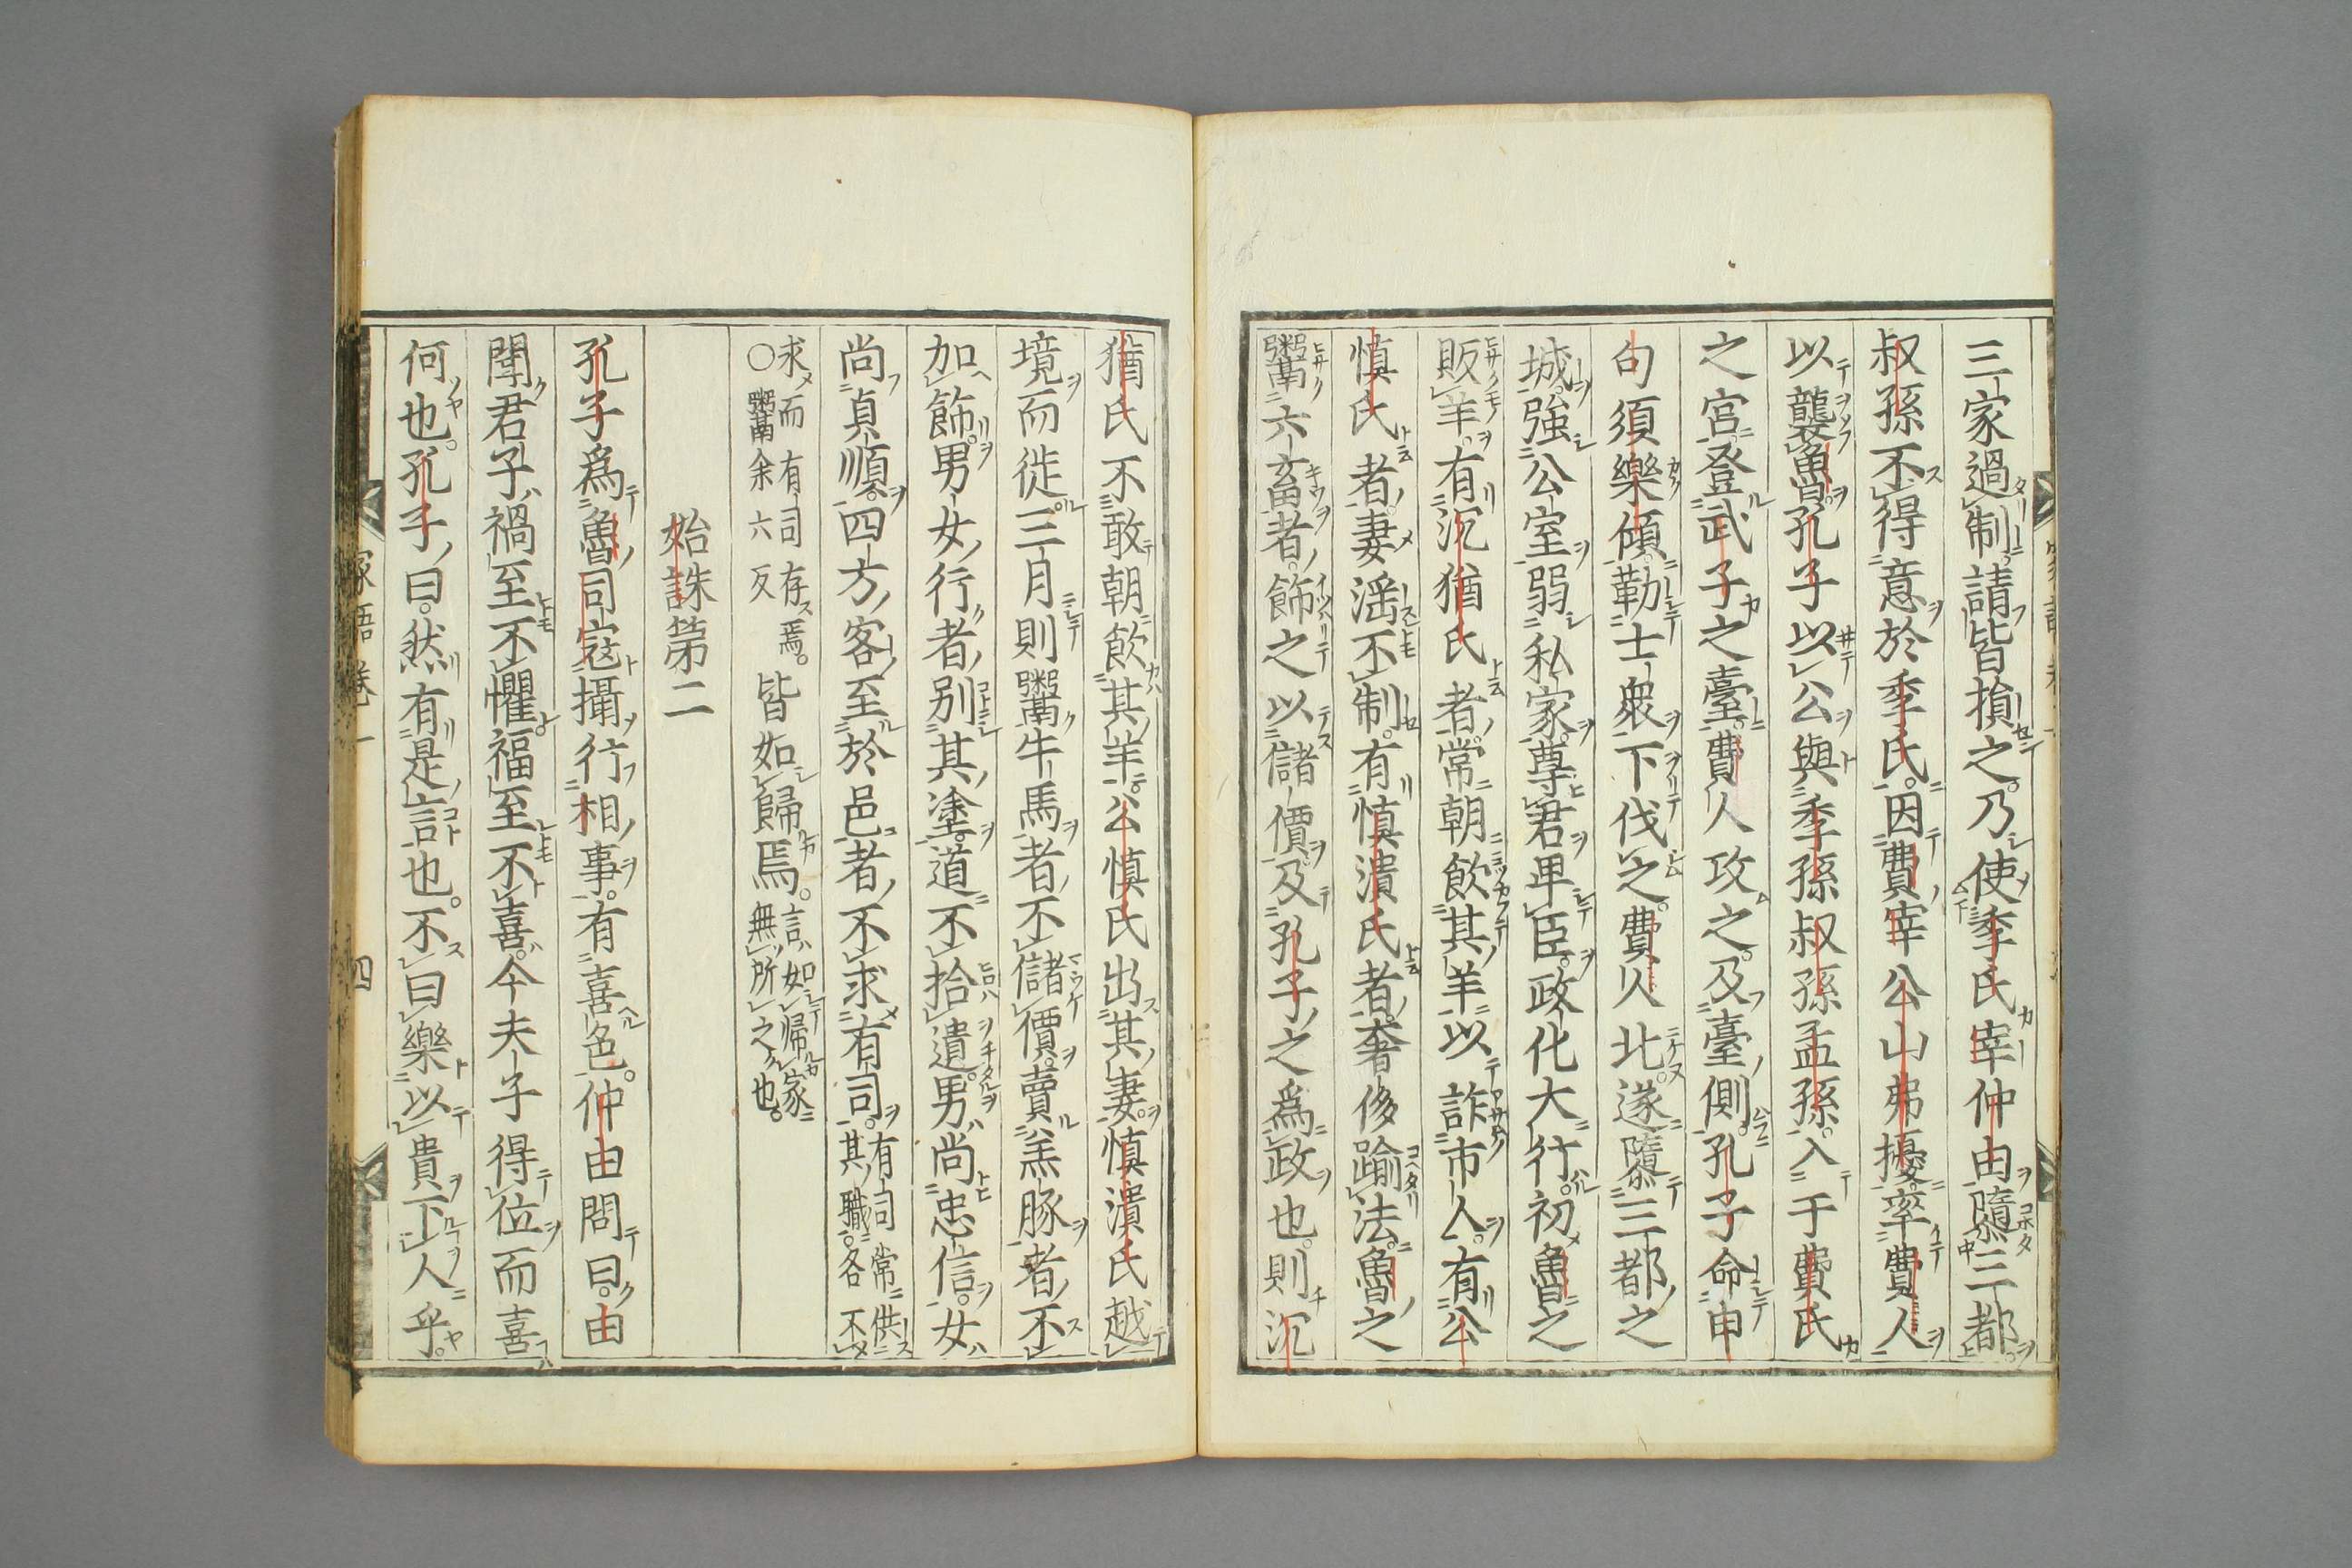 三家過制請皆損之。乃使季氏宰仲由隳三都。
叔孫不得意於季氏。因費宰公山弗擾。率費人
以襲魯。孔子以公與季孫叔孫孟孫。入于費氏
之宮。登武子之臺。費人攻之。及臺側。孔子命申
句須樂傾。勒士衆下伐之。費人北。遂隳三都之
城。強公室弱私家。尊君卑臣。政化大行。初魯之
販羊。有沉猶氏者。常朝飲其羊以詐市人。有公
慎氏者。妻滛不制。有慎潰氏者。奢侈踰法。魯之
鬻六畜者。飾之以儲價。及孔子之爲政也。則沉
猶氏不敢朝飲其羊。公慎氏出其妻。慎潰氏越
境而徙。三月則鬻牛馬者不儲價。賣羔豚者不
加飾。男女行者別其塗。道不拾遺。男尚忠信。女
尚貞順。四方客至於邑者不求有司。有司常供其職。各不
求而有司存焉。○鬻余六反皆如歸焉。言如帰家無所之也。
始誅第二
孔子爲魯司寇攝行相事。有喜色。仲由問曰。由
聞君子禍至不懼。福至不喜。今夫子得位而喜
何也。孔子曰。然有是言也。不曰樂以貴下人乎。
家語卷一
四